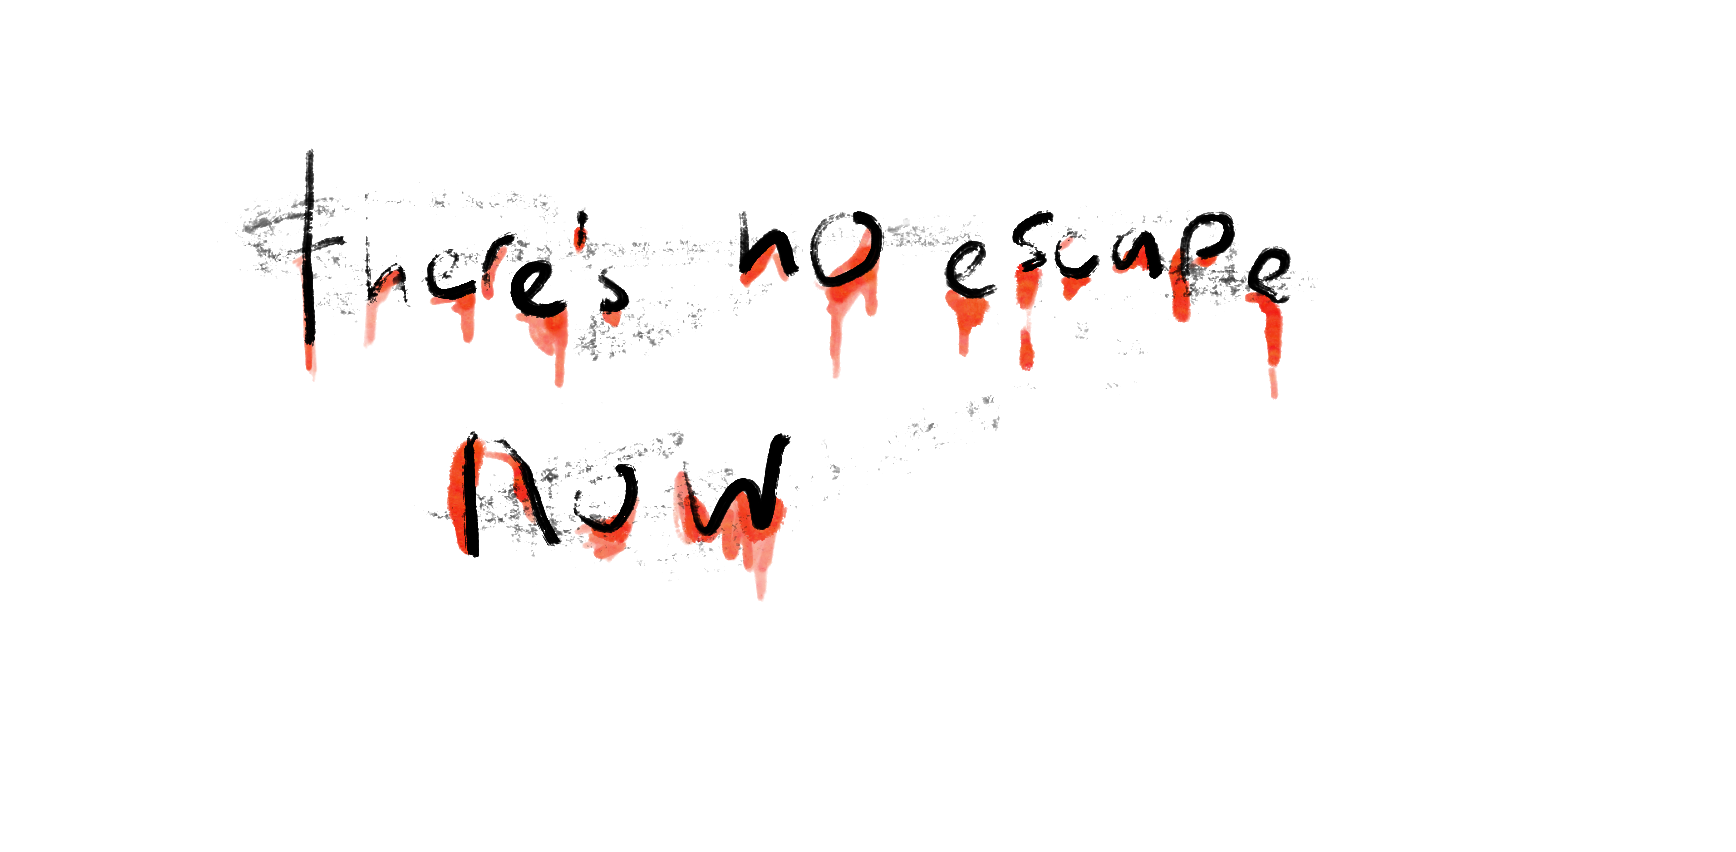 there's no escape
now